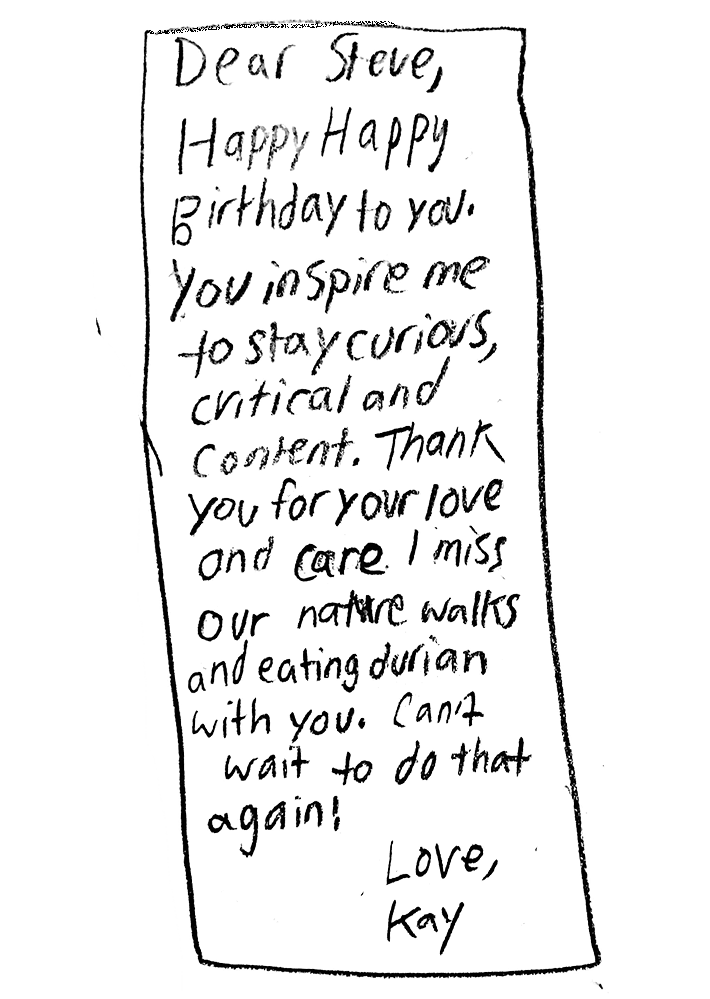 Dear Steve,
Happy Happy
Birthday to you.
You inspire me
to stay curious,
critical and
content. Thank
you for your love
and care. I miss
our nature walks
and eating durian
with you. Can't
wait to do that
again!
Love,
Kay